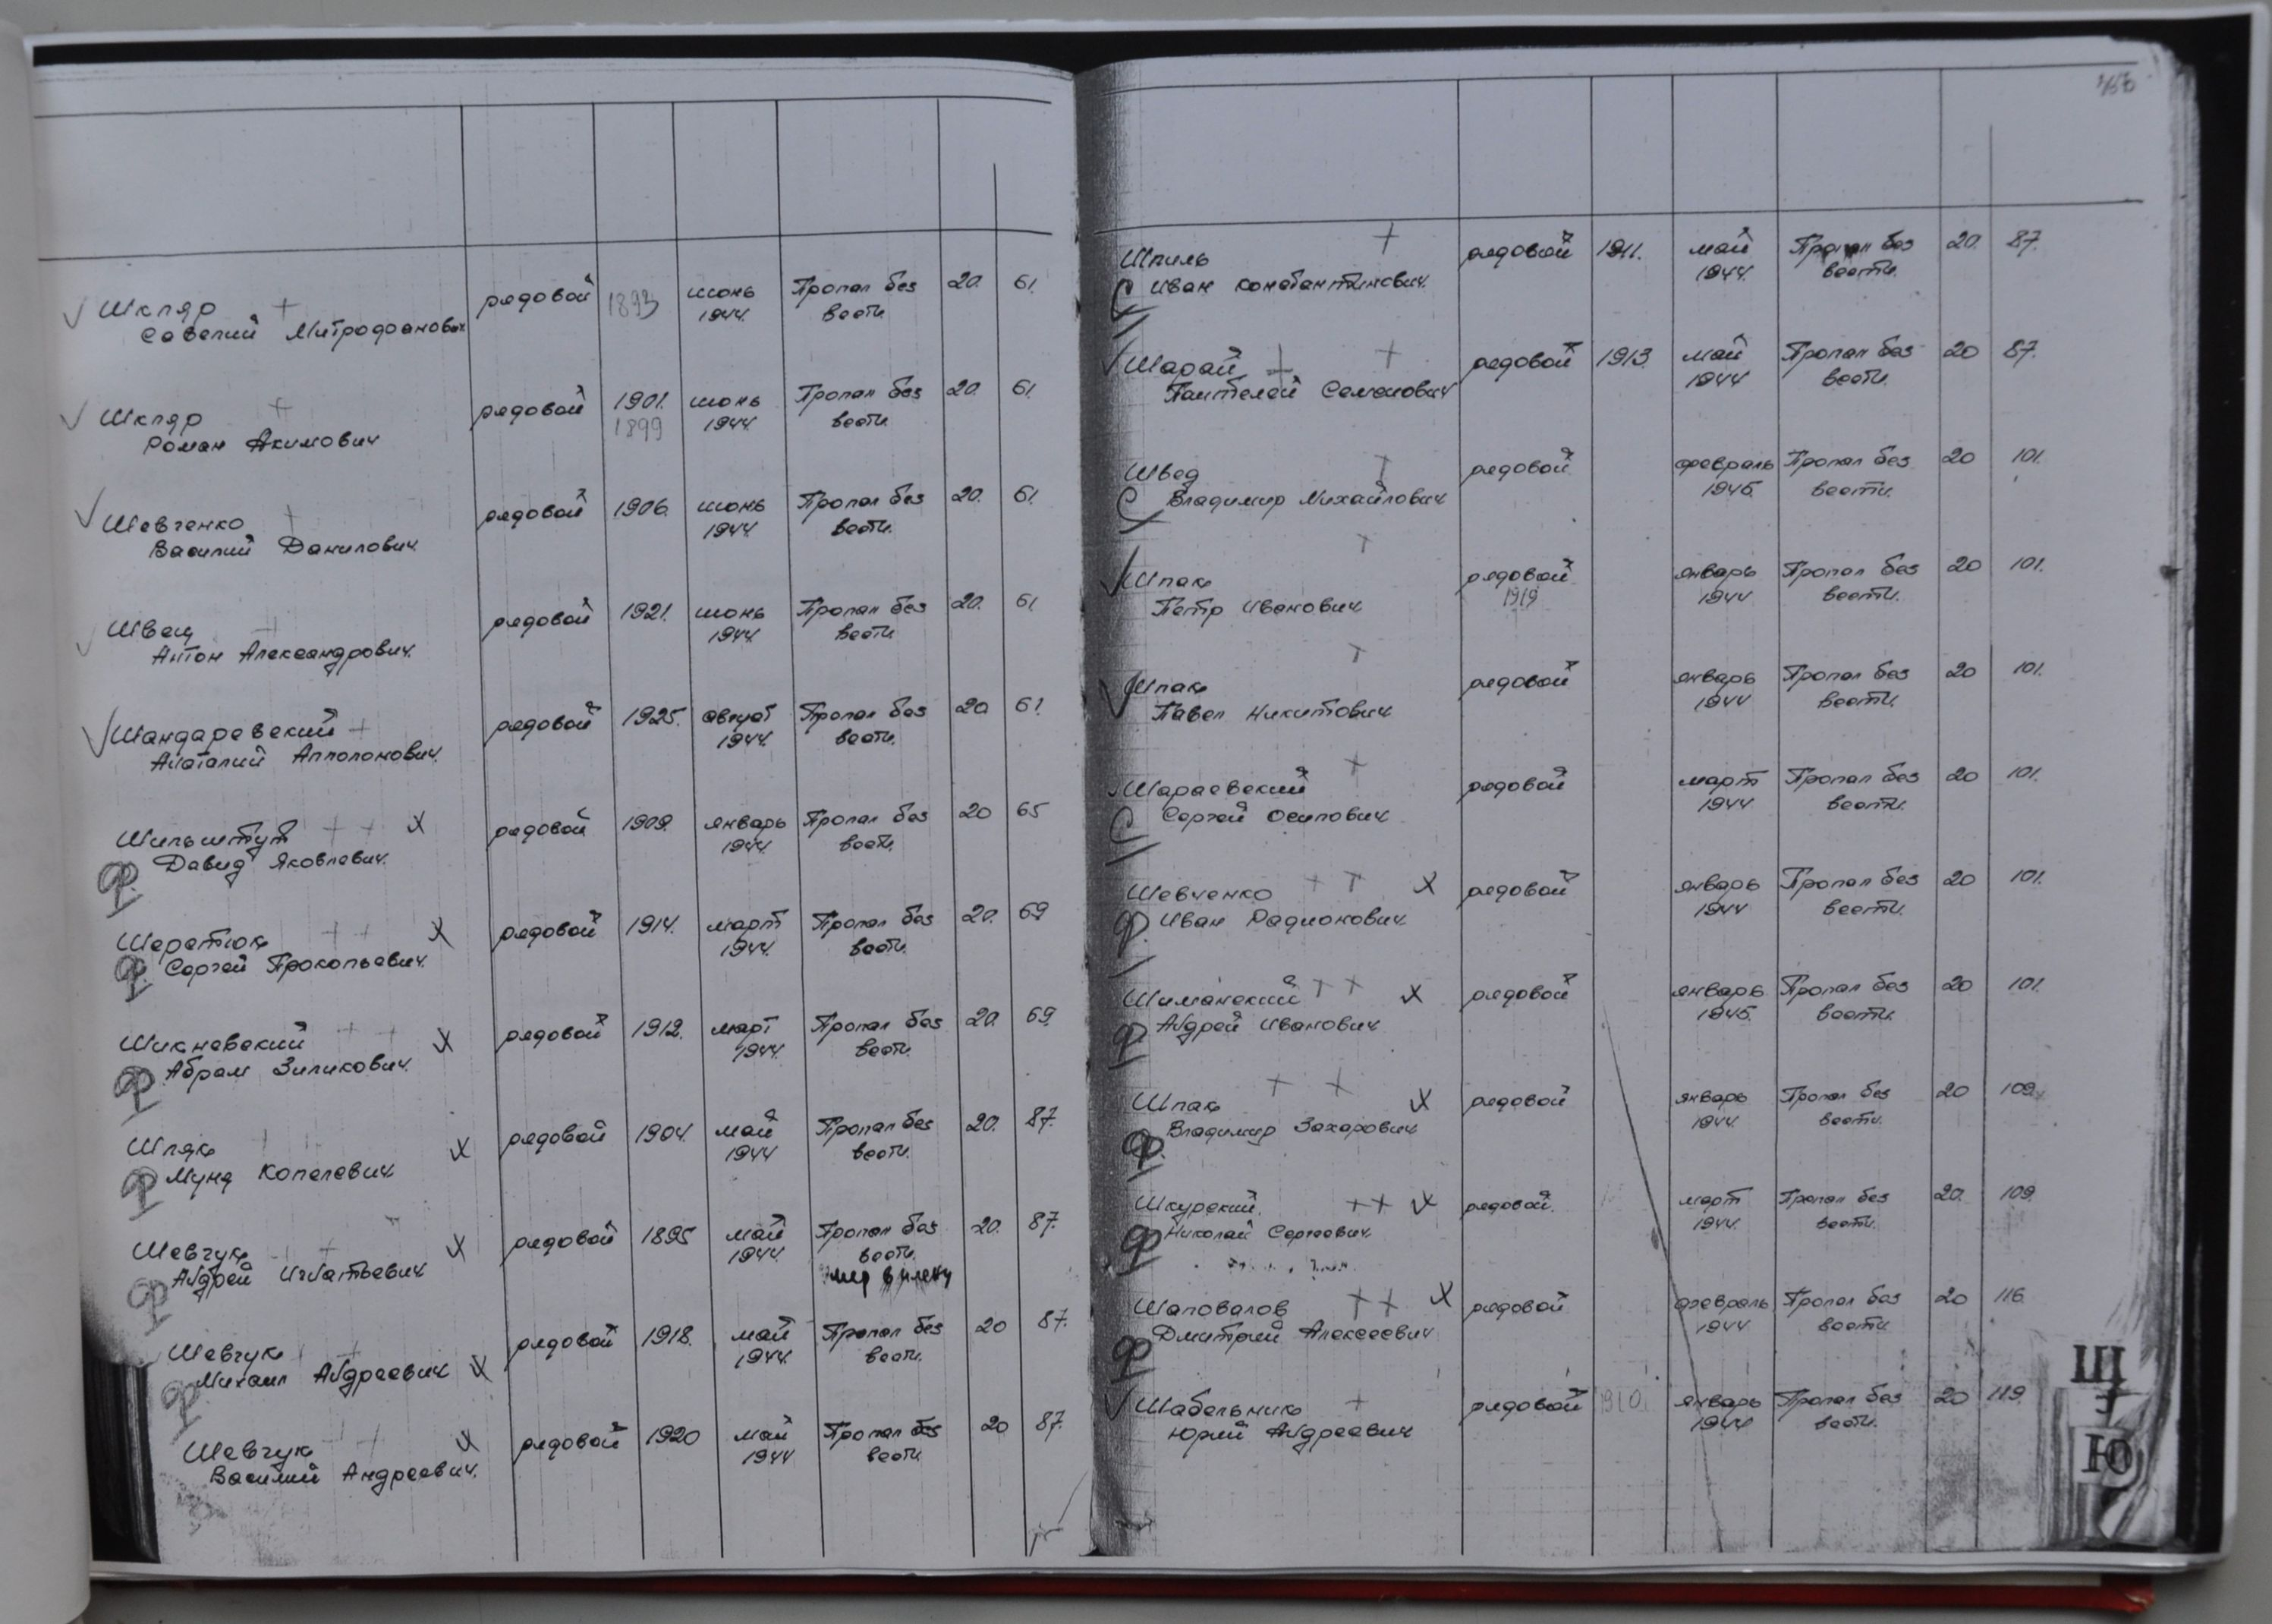 Шкляр + рядовой 1893 июнь 1944. Пропал без вести. 20. 61.
Савелий Митрофанович
Шкляр + рядовой 1901. 1899 июнь 1944. Пропал без вести. 20. 61.
Роман Акимович
Шевченко + рядовой 1906. июнь 1944. Пропал без вести. 20. 61.
Василий Данилович.
Швец + рядовой 1921. июнь 1944. Пропал без вести 20. 61
Антон Александрович.
Шандаревский + рядовой 1925. август 1944. Пропал без вести. 20 61.
Анаталий Апполонович.
Шильштут + + х рядовой 1909. январь 1944. Пропал без вести. 20 65
Ф. Давид Яковлевич.
Шеретюк + + х рядовой 1914. март 1944. Пропал без вести. 20. 69
Ф. Сергей Прокопьевич.
Шикневский + + х рядовой 1912. март 1944. Пропал без вести. 20. 69.
Ф Абрам Зиликович.
Шляк х рядовой 1904. май 1944 Пропал без вести. 20. 87.
Ф Мунд Копелевич
Шевчук + х рядовой 1895 май 1944. Пропал без вести. 20. 87.
Ф Андрей Игнатьевич умер в плену
Шевчук + х рядовой 1918. май 1944. Пропал без вести. 20 87.
Ф Михаил Андреевич
Шевчук + + х рядовой 1920 май 1944 Пропал без вести 20 87.
Василий Андреевич.
Шпиль + рядовой 1911. май 1944. Пропал без вести. 20. 87.
С Иван Константинович.
Шарай + + рядовой 1913. май 1944 Пропал без вести. 20 87.
Пантелей Семенович
Швед + рядовой февраль 1945. Пропал без вести. 20 101.
С Владимир Михайлович
Шпак + рядовой 1919 январь 1944 Пропал без вести. 20 101.
Петр Иванович
Шпак + рядовой январь 1944. Пропал без вести. 20 101.
Павел Никитович
Шараевский + рядовой март 1944 Пропал без вести. 20 101.
С Сергей Осипович
Шевченко + + х рядовой январь 1944 Пропал без вести. 20 101.
Ф. Иван Радионович.
Шиманский + + х рядовой январь 1945. Пропал без вести. 20 101.
Ф Андрей Иванович
Шпак + + х рядовой январь 1944. Пропал без вести. 20 109.
Ф. Владимир Захарович
Шкурский. + + х рядовой. март 1944. Пропал без вести. 20. 109.
Ф Николай Сергеевич.
Шаповалов + + х рядовой февраль 1944 Пропал без вести 20 116.
Ф Дмитрий Алексеевич
Шабельник + рядовой 1910. январь 1944 Пропал без вести. 20 119.
Юрий Андреевич
Щ
Э
Ю